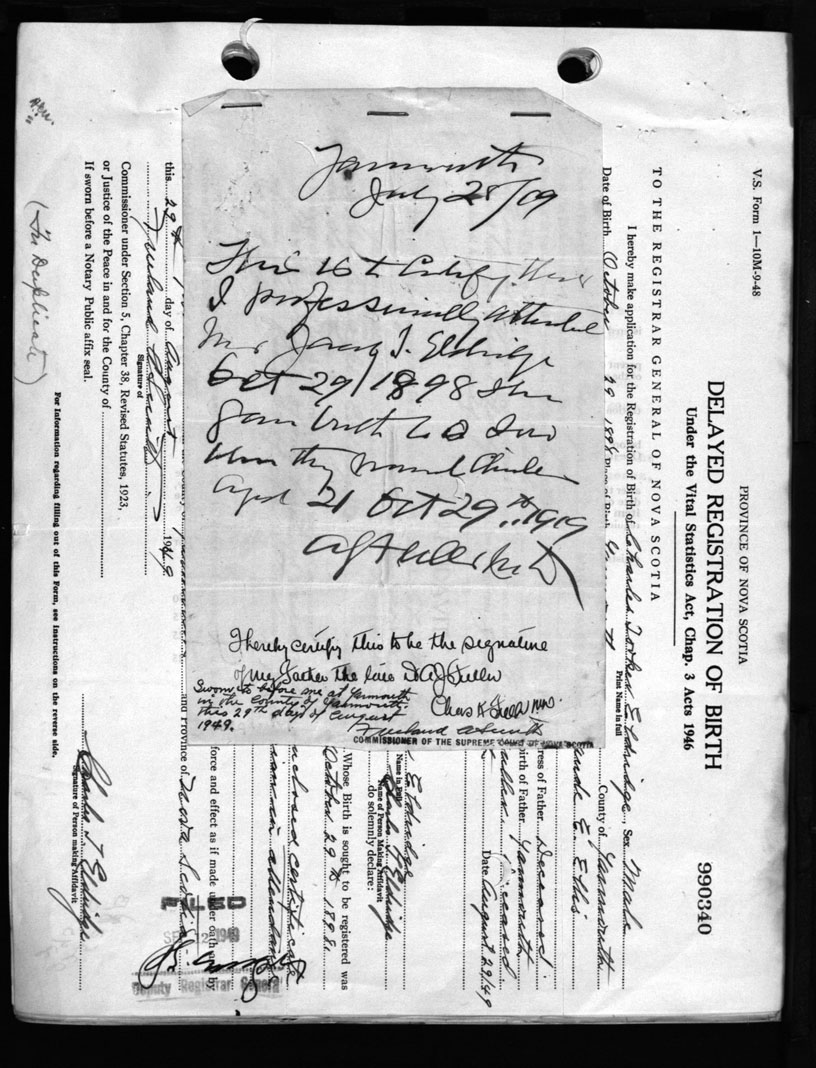 V.S. Form 1—10M-9-48
PROVINCE OF NOVA SCOTIA
DELAYED REGISTRATION OF BIRTH
990340
Under the Vital Statistics Act, Chap. 3 Acts 1946
TO THE REGISTRAR GENERAL OF NOVA SCOTIA
I hereby make application for the Registration of Birth of Charles Eldridge, Sex Male
Print Name in full
Date of Birth October 29 1898 Place of Birth County of Yarmouth
E. Ellis
ress of Father Deceased
birth of Father Yarmouth
Date August 29/49
Eldridge
Name in
Charles T Eldridge
Name of Person Making Affidavit
do solemnly declare:
Whose Birth is sought to be registered was
October 29th 1898.
nclosed certificate
in attendance
force and effect as if made under oath by
and Province of Nova Scotia
this 29th day of August 1949.
Signature of
Commissioner under Section 5, Chapter 38, Revised Statutes, 1923,
or Justice of the Peace in and for the County of
If sworn before a Notary Public affix seal.
(In Duplicate)
For Information regarding filling out of this Form, see Instructions on the reverse side.
Charles T Eldridge
Signature of Person making Affidavit
FILED
1949
Deputy Registrar General
Yarmouth
July 28/09
This is to Certify that
I professionally attended
Mrs I. Eldridge
Oct 29/1898 She
gave birth to a Son
aged 21 Oct 29th 1919
I hereby certify this to be the signature
of my Father the late Dr A J Fuller
Chas K Fuller M.D.
Sworn to before me at Yarmouth
in the County of Yarmouth,
this 29th day of August
1949.
COMMISSIONER OF THE SUPREME COURT OF NOVA SCOTIA